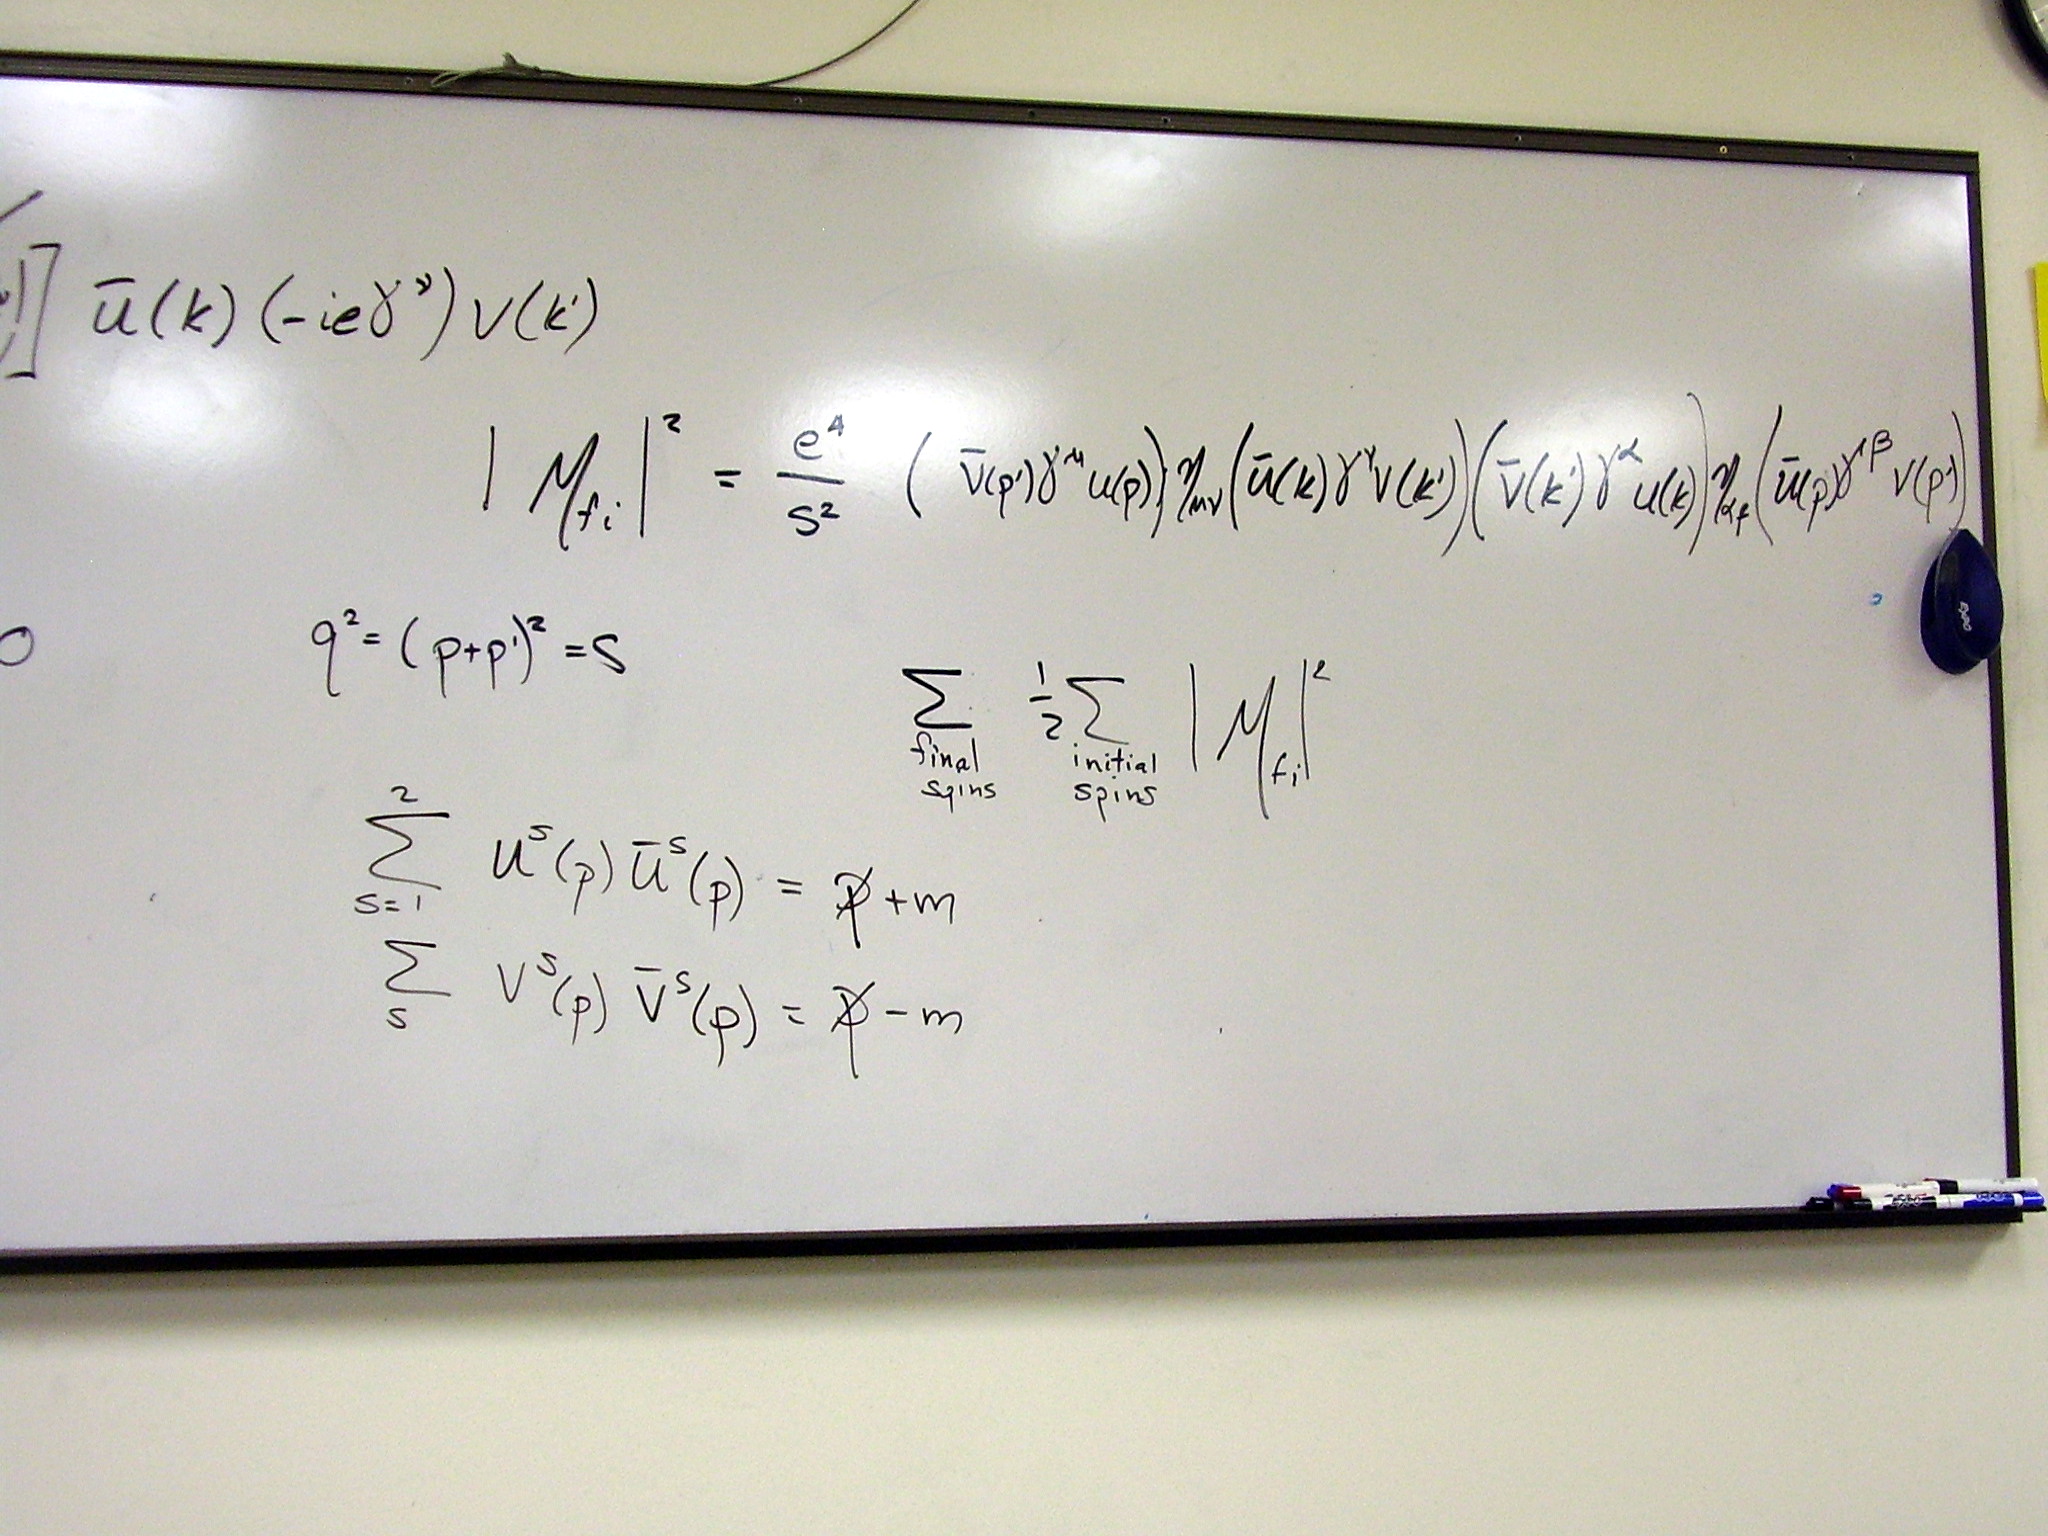 ] ū(k) (-ieγ^ν) v(k')
|M_fi|² = e⁴/s² (v̄(p')γ^μ u(p)) η_μν (ū(k)γ^ν v(k')) (v̄(k')γ^α u(k)) η_αβ (ū(p)γ^β v(p'))
q² = (p+p')² = s
∑_{final spins} ½ ∑_{initial spins} |M_fi|²
∑_{s=1}^{2} u^s(p) ū^s(p) = p̸ + m
∑_s v^s(p) v̄^s(p) = p̸ - m
EXPO